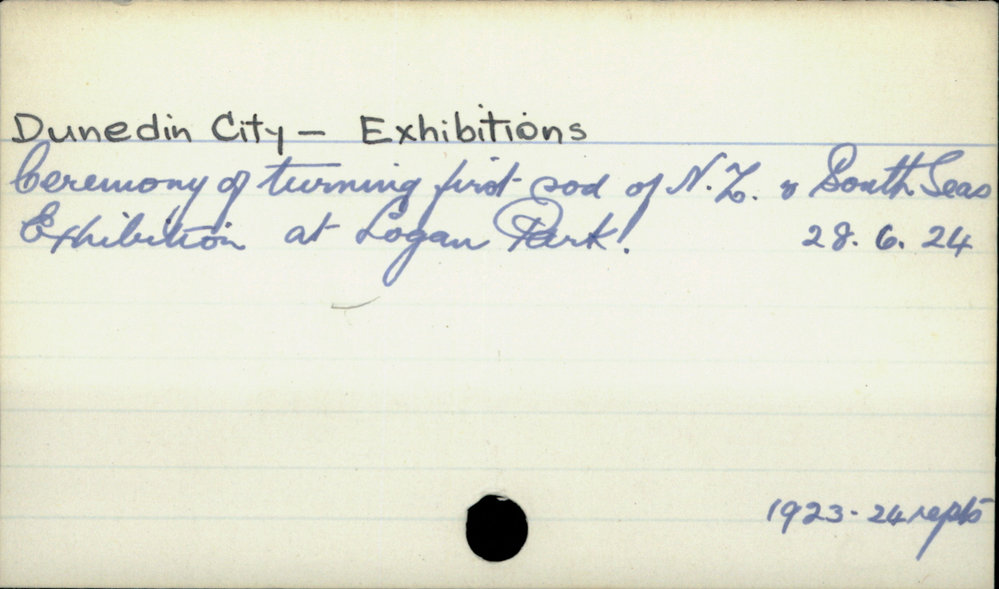 Dunedin City — Exhibitions
Ceremony of turning first sod of N.Z. & South Seas
Exhibition at Logan Park. 28. 6. 24
1923-24 repts